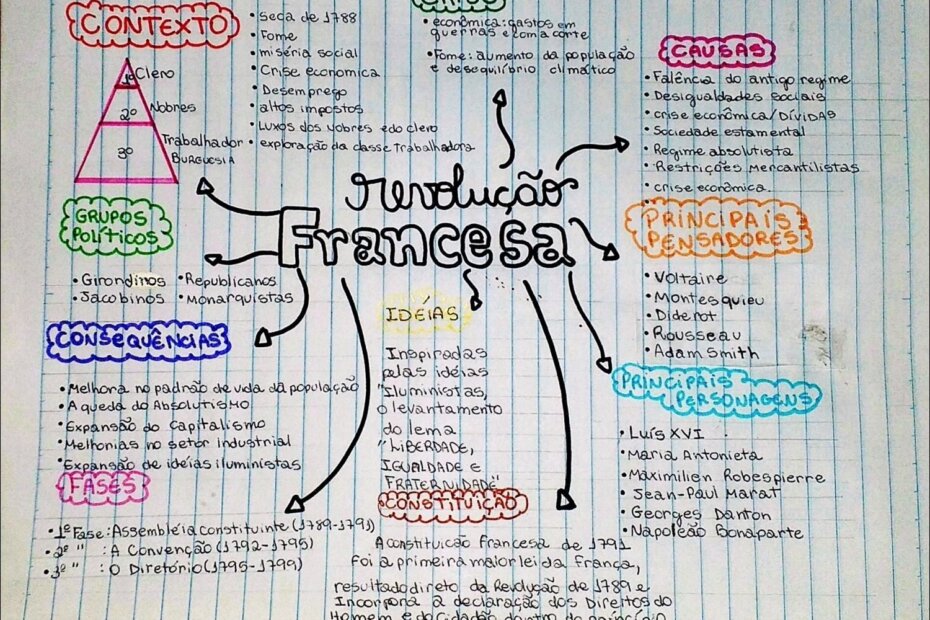 CONTEXTO
1º Clero
2º Nobres
3º Trabalhador
BURGUESIA
• seca de 1788
• Fome
• miséria social
• Crise economica
• Desemprego
• altos impostos
• Luxos dos Nobres e do clero
• exploração da classe trabalhadora
• econômica: gastos em
guerras e com a corte
• Fome: aumento da população
e desequilíbrio climático
CAUSAS
• Falência do antigo regime
• Desigualdades sociais
• crise econômica/DÍVIDAS
• Sociedade estamental
• Regime absolutista
• Restrições Mercantilistas
• crise econômica.
revolução
Francesa
GRUPOS
POLÍTICOS
• Girondinos • Republicanos
• Jacobinos • Monarquistas
PRINCIPAIS
PENSADORES
• Voltaire
• Montesquieu
• Diderot
• Rousseau
• Adam Smith
CONSEQUÊNCIAS
• Melhora no padrão de vida dá população
• A queda do Absolutismo
• Expansão do capitalismo
• Melhorias no setor industrial
• Expansão de idéias iluministas
IDÉIAS
Inspiradas
pelas idéias
"Iluministas,
o levantamento
do lema
"LIBERDADE,
IGUALDADE e
FRATERNIDADE"
PRINCIPAIS
PERSONAGENS
• Luís XVI
• Maria Antonieta
• Maximilien Robespierre
• Jean-Paul Marat
• Georges Danton
• Napoleão Bonaparte
FASES
• 1ª Fase: Assembléia constituinte (1789-1791)
• 2ª " : A Convenção (1792-1795)
• 3ª " : O Diretório (1795-1799)
CONSTITUIÇÃO
A constituição francesa de 1791
foi a primeira maior lei da França,
resultado direto da Revolução de 1789 e
Incorpora a declaração dos Direitos do
Homem e do Cidadão dentro do princípio